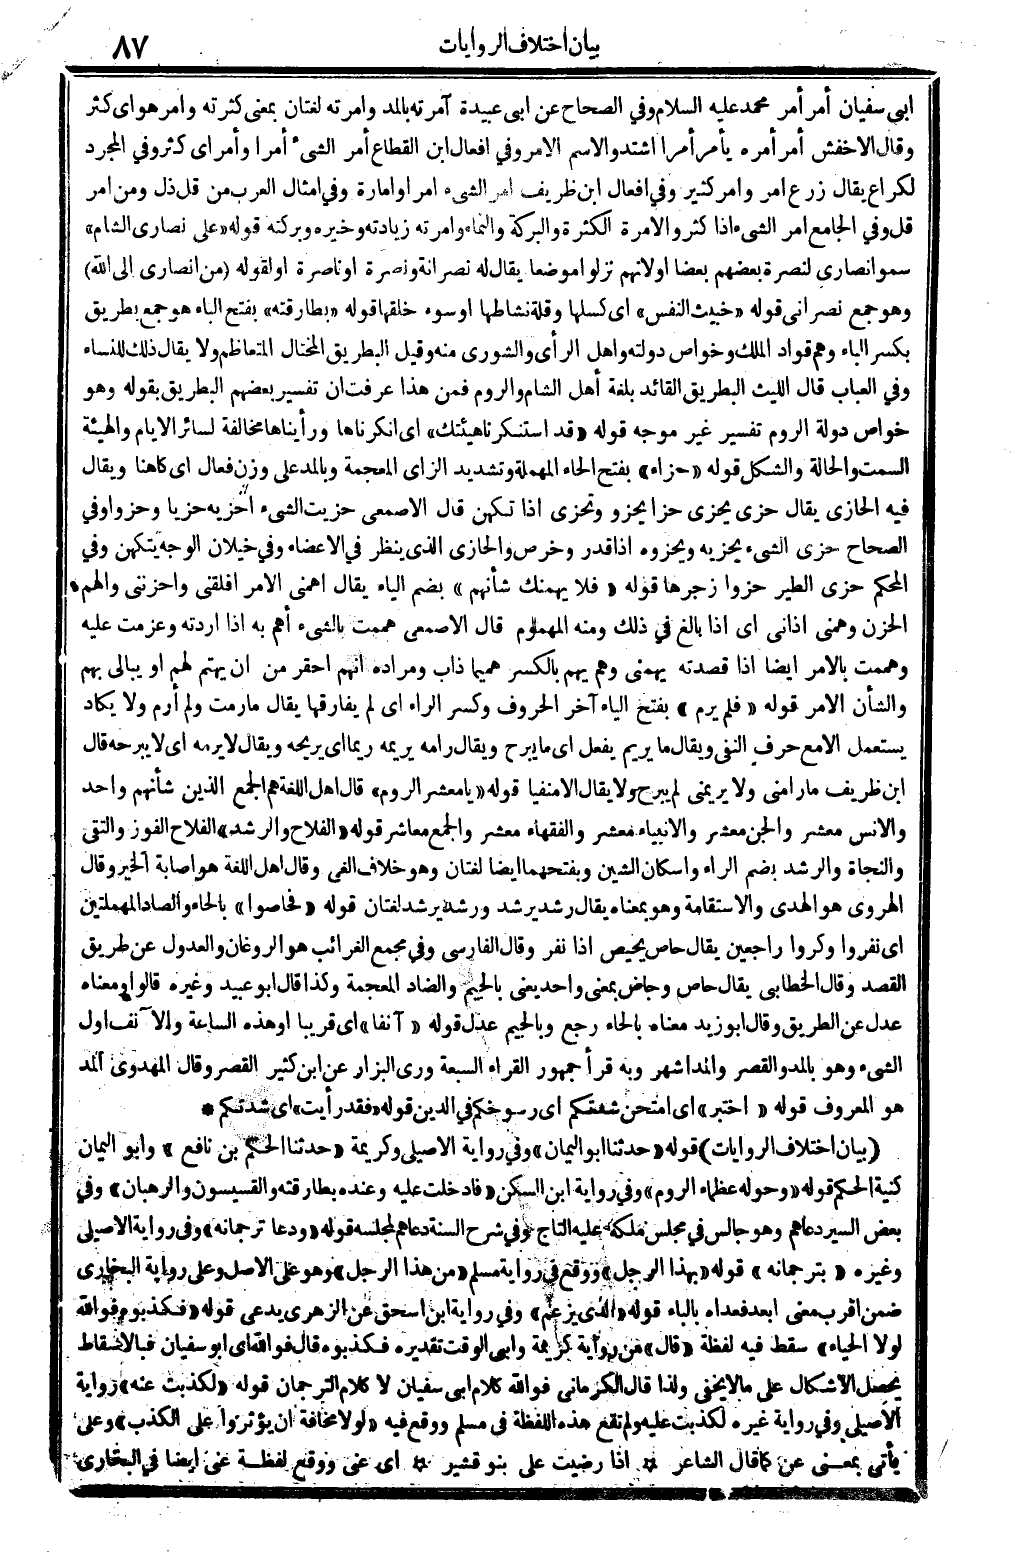 بيان اختلاف الروايات
٨٧
ابى سفيان أمر أمر محمد عليه السلام وفي الصحاح عن ابى عبيدة آمرته بالمد وامرته لغتان بمعنى كثرته وامر هو اى كثر
وقال الاخفش أمر أمره يأمر أمرا اشتد والاسم الامر وفي افعال ابن القطاع أمر الشىء أمرا وأمر اى كثر وفي المجرد
لكراع يقال زرع امر وامر كثير وفي افعال ابن ظريف امر الشىء امرا وامارة وفي امثال العرب من قل ذل ومن امر
قل وفي الجامع امر الشىء اذا كثر والامرة الكثرة والبركة والنماء وامرته زيادته وخيره وبركته قوله «على نصارى الشام»
سموا نصارى لنصرة بعضهم بعضا اولانهم نزلوا موضعا يقال له نصرانة ونصرة او ناصرة اولقوله (من انصارى الى الله)
وهو جمع نصرانى قوله «خبيث النفس» اى كسلها وقلة نشاطها اوسوء خلقها قوله «بطارقته» بفتح الباء هو جمع بطريق
بكسر الباء وهم قواد الملك وخواص دولته واهل الرأى والشورى منه وقيل البطريق المختال المتعاظم ولا يقال ذلك للنساء
وفي العباب قال الليث البطريق القائد بلغة أهل الشام والروم فمن هذا عرفت ان تفسير بعضهم البطريق بقوله وهو
خواص دولة الروم تفسير غير موجه قوله «قد استنكرنا هيئتك» اى انكرناها ورأيناها مخالفة لسائر الايام والهيئة
السمت والحالة والشكل قوله «حزاء» بفتح الحاء المهملة وتشديد الزاى المعجمة وبالمد على وزن فعال اى كاهنا ويقال
فيه الحازى يقال حزى يحزى حزا يحزو وتحزى اذا تكهن قال الاصمعى حزيت الشىء احزيه حزيا وحزوا وفي
الصحاح حزى الشىء يحزيه ويحزوه اذا قدر وخرص والحازى الذى ينظر في الاعضاء وفي خيلان الوجه يتكهن وفي
المحكم حزى الطير حزوا زجرها قوله « فلا يهمنك شأنهم » بضم الياء يقال اهمنى الامر اقلقنى واحزننى والهم
الحزن وهمنى اذانى اى اذا بالغ في ذلك ومنه المهموم قال الاصمعى هممت بالشىء أهم به اذا اردته وعزمت عليه
وهممت بالامر ايضا اذا قصدته يهمنى وهم يهم بالكسر هميما ذاب ومراده انهم احقر من ان يهتم لهم او يبالى بهم
والشأن الامر قوله « فلم يرم » بفتح الياء آخر الحروف وكسر الراء اى لم يفارقها يقال مارمت ولم أرم ولا يكاد
يستعمل الامع حرف النفى ويقال ما يريم يفعل اى ما يبرح ويقال رامه يريمه ريما اى يريحه ويقال لا يرمه اى لا يبرحه قال
ابن ظريف مارامنى ولا يريمنى لم يبرح ولا يقال الا منفيا قوله «يا معشر الروم» قال اهل اللغة هم الجمع الذين شأنهم واحد
والانس معشر والجن معشر والانبياء معشر والفقهاء معشر والجمع معاشر قوله «الفلاح والرشد» الفلاح الفوز والتقى
والنجاة والرشد بضم الراء واسكان الشين وبفتحهما ايضا لغتان وهو خلاف الغى وقال اهل اللغة هو اصابة الخير وقال
الهروى هو الهدى والاستقامة وهو بمعناه يقال رشد يرشد ورشد يرشد لغتان قوله « فحاصوا » بالحاء والصاد المهملتين
اى نفروا وكروا راجعين يقال حاص يحيص اذا نفر وقال الفارسى وفي مجمع الغرائب هو الروغان والعدول عن طريق
القصد وقال الخطابى يقال حاص وجاض بمعنى واحد يعنى بالجيم والضاد المعجمة وكذا قال ابو عبيد وغيره قالوا ومعناه
عدل عن الطريق وقال ابوزيد معناه بالحاء رجع وبالجيم عدل قوله « آنفا » اى قريبا اوهذه الساعة والآنف اول
الشىء وهو بالمد والقصر والمد اشهر وبه قرأ جمهور القراء السبعة وروى البزار عن ابن كثير القصر وقال المهدوى المد
هو المعروف قوله « اختبر » اى امتحن شدتكم اى رسوخكم في الدين قوله «فقد رأيت» اى شدتكم *
(بيان اختلاف الروايات) قوله «حدثنا ابو اليمان» وفي رواية الاصيلى وكريمة «حدثنا الحكم بن نافع » وابو اليمان
كنية الحكم قوله «وحوله عظماء الروم» وفي رواية ابن السكن «فادخلت عليه وعنده بطارقته والقسيسون والرهبان» وفي
بعض السير دعاهم وهو جالس في مجلس ملكه عليه التاج وفي شرح السنة دعاهم لمجلسه قوله «ودعا ترجمانه» وفى رواية الاصيلى
وغيره « بترجمانه » قوله «بهذا الرجل» ووقع في رواية مسلم «من هذا الرجل» وهو على الاصل وعلى رواية البخارى
ضمن اقرب معنى ابعد فعداه بالباء قوله «الذى يزعم» وفي رواية ابن اسحق عن الزهرى يدعى قوله «فكذبوه فوالله
لولا الحياء» سقط فيه لفظة «قال» من رواية كريمة وابى الوقت تقديره فكذبوه قال فوالله اى ابوسفيان فبالاسقاط
يحصل الاشكال على مالايخفى ولذا قال الكرمانى فوالله كلام ابى سفيان لا كلام الترجمان قوله «لكذبت عنه» رواية
الاصيلى وفي رواية غيره لكذبت عليه ولم تقع هذه اللفظة فى مسلم ووقع فيه «لولا مخافة ان يؤثروا على الكذب» وعلى
يأتى بمعنى عن كما قال الشاعر * اذا رضيت على بنو قشير * اى عنى ووقع لفظة عنى ايضا في البخارى